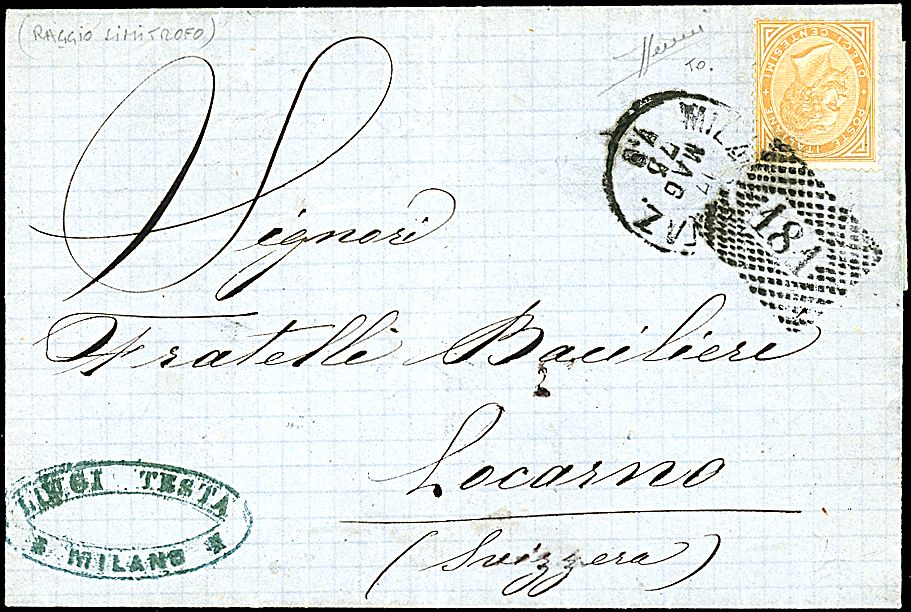 (RAGGIO LIMITROFO)
DIECI CENTESIMI
POSTE ITALIANE
17
MAG
78
181
Signori
Fratelli Bacilieri
Locarno
(Svizzera)
LUIGI TESTA
* MILANO *